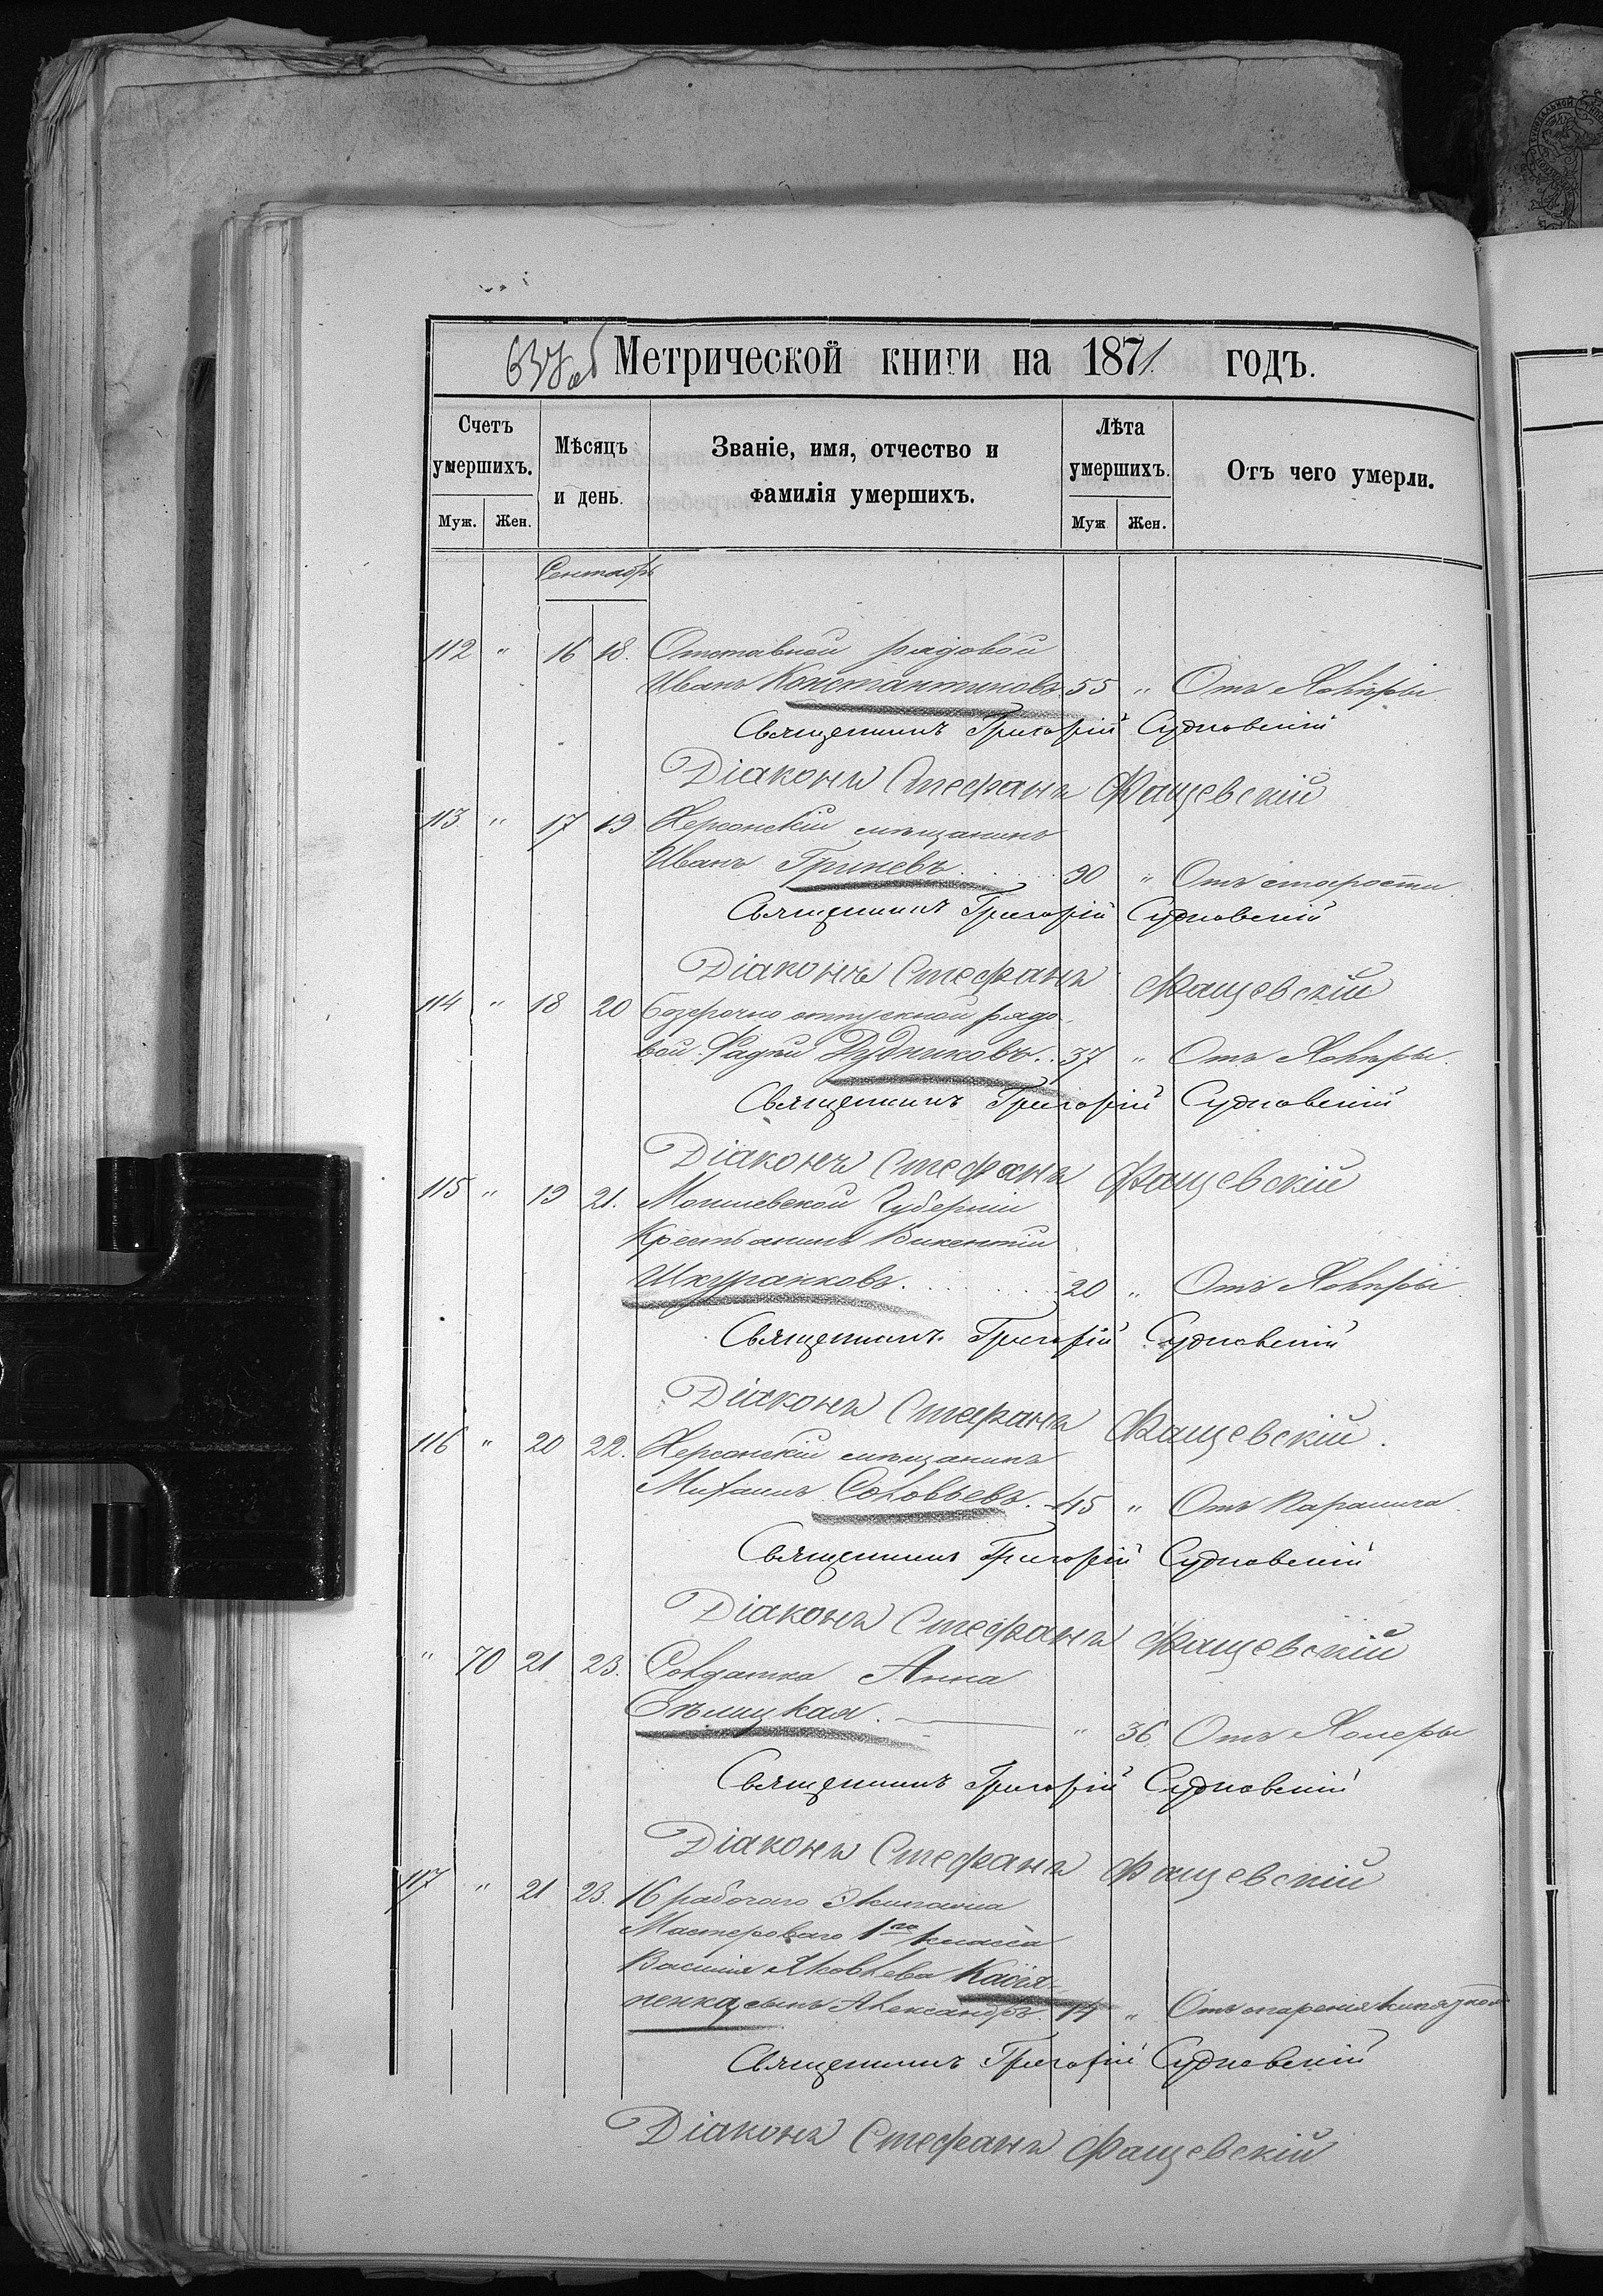 637 об Метрической книги на 1871 годъ.
Счетъ умершихъ.
Муж. Жен.
Мѣсяцъ и день.
Званіе, имя, отчество и
фамилія умершихъ.
Лѣта умершихъ.
Муж Жен.
Отъ чего умерли.
Сентябрь
112 " 16 18. Отставной рядовой
Иванъ Константиновъ 55 " Отъ Холеры
Священникъ Григорій Судковскій
Діаконъ Стефанъ Фащевскій
113 " 17 19 Херсонскій мѣщанинъ
Иванъ Гриневъ. 90 " Отъ старости
Священникъ Григорій Судковскій
Діаконъ Стефанъ Фащевскій
114 " 18 20 Безсрочно отпускной рядо
вой Фадѣй Дудниковъ. 37 " Отъ Холеры.
Священникъ Григорій Судковскій
Діаконъ Стефанъ Фащевскій
115 " 19 21. Могилевской Губерніи
Крестьянинъ Викентій
Шкуранковъ. 20 " Отъ Холеры
Священникъ Григорій Судковскій
Діаконъ Стефанъ Фащевскій.
116 " 20 22. Херсонскій мѣщанинъ
Михаилъ Соловьевъ. 45 " Отъ Паралича
Священникъ Григорій Судковскій
Діаконъ Стефанъ Фащевскій
" 70 21 23. Солдатка Анна
Бѣлицкая. " 36 Отъ Холеры
Священникъ Григорій Судковскій
Діаконъ Стефанъ Фащевскій
117 " 21 23. 16 рабочаго Экипажа
Мастероваго 1го класса
Василія Яковлева Касья-
ненка, сынъ Александръ. 14 " Отъ опаренія кипяткомъ
Священникъ Григорій Судковскій
Діаконъ Стефанъ Фащевскій